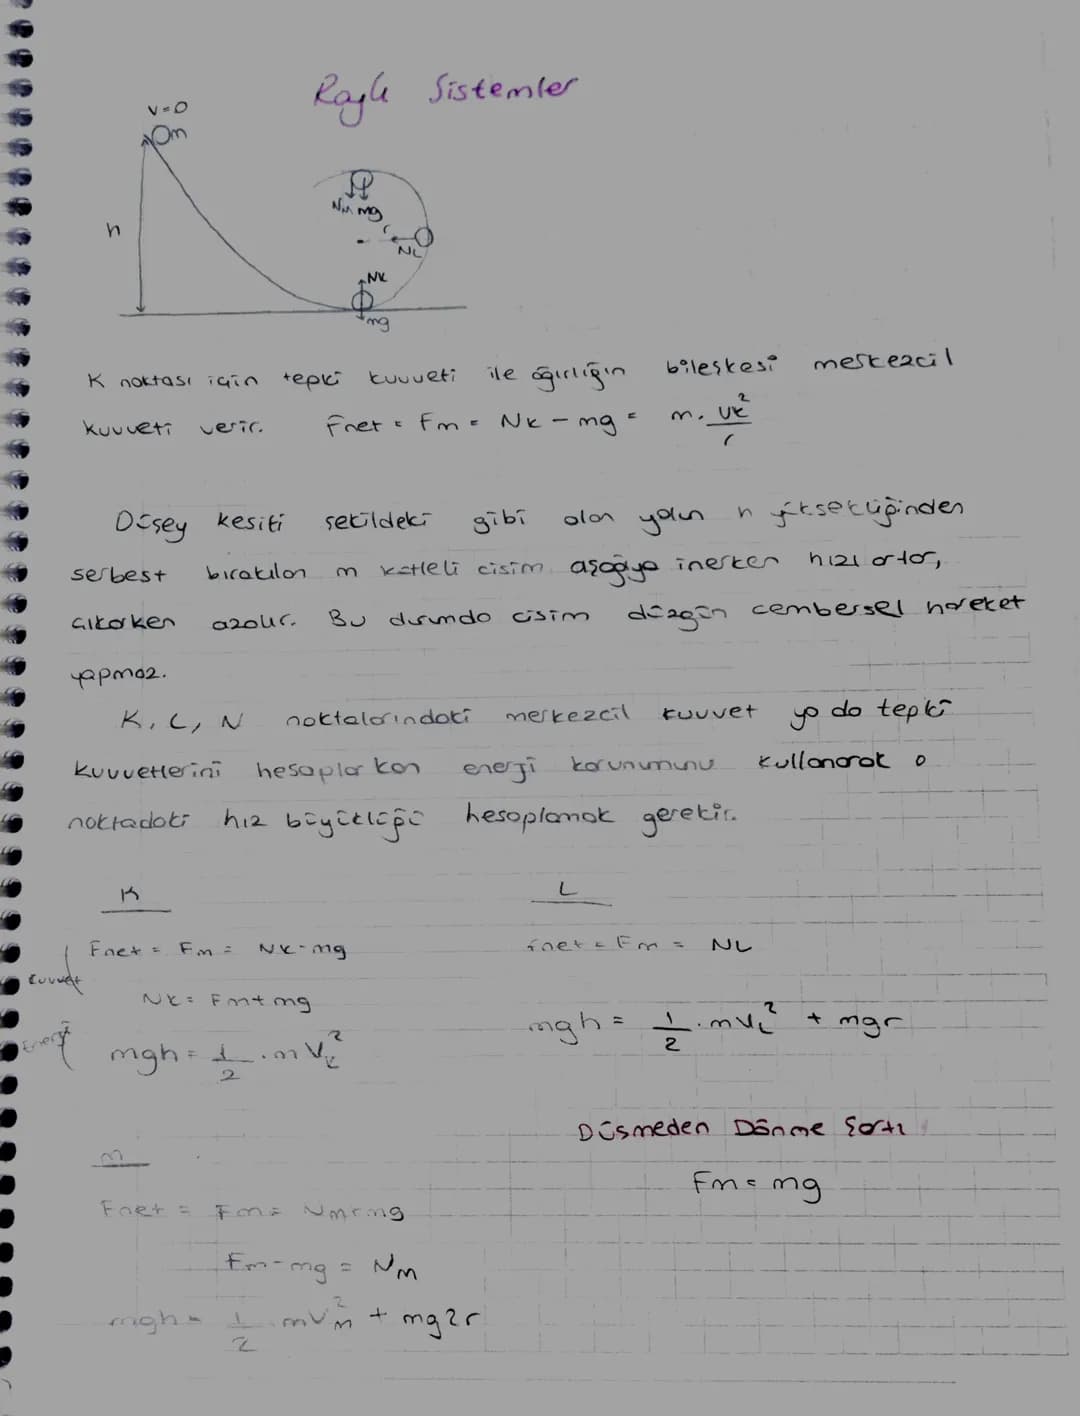 Raylı Sistemler
V=0
m
h
NM mg
r
NL
NK
mg
K noktası için tepki kuvveti ile ağırlığın bileşkesi merkezcil
kuvveti verir. Fnet = Fm = NK - mg = m. VK²/r
Düşey kesiti şekildeki gibi olan yolun h yüksekliğinden
serbest bırakılan m kütleli cisim aşağıya inerken hızı artar,
çıkarken azalır. Bu durumda cisim düzgün çembersel hareket
yapmaz.
K, L, N noktalarındaki merkezcil kuvvet ya da tepki
kuvvetlerini hesaplarken enerji korunumunu kullanarak o
noktadaki hız büyüklüğü hesaplamak gerekir.
K
L
Fnet = Fm = NK - mg
Fnet = Fm = NL
Kuvvet
NK = Fm + mg
mgh = 1/2 . mVL² + mgr
Enerji
mgh = 1/2 . mVK²
Düşmeden Dönme Şartı
m
Fm = mg
Fnet = Fm = Nm+mg
Fm - mg = Nm
mgh = 1/2 mVm² + mg2r